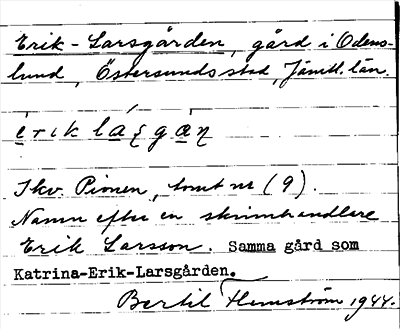 Erik-Larsgården, gård i Odens-
lund, Östersunds stad, Jämtl. län.
I kv. Pionen, tomt nr (9).
Namn efter en skinnhandlare
Erik Larsson. Samma gård som
Katrina-Erik-Larsgården.
Bertil Flemström 1944.